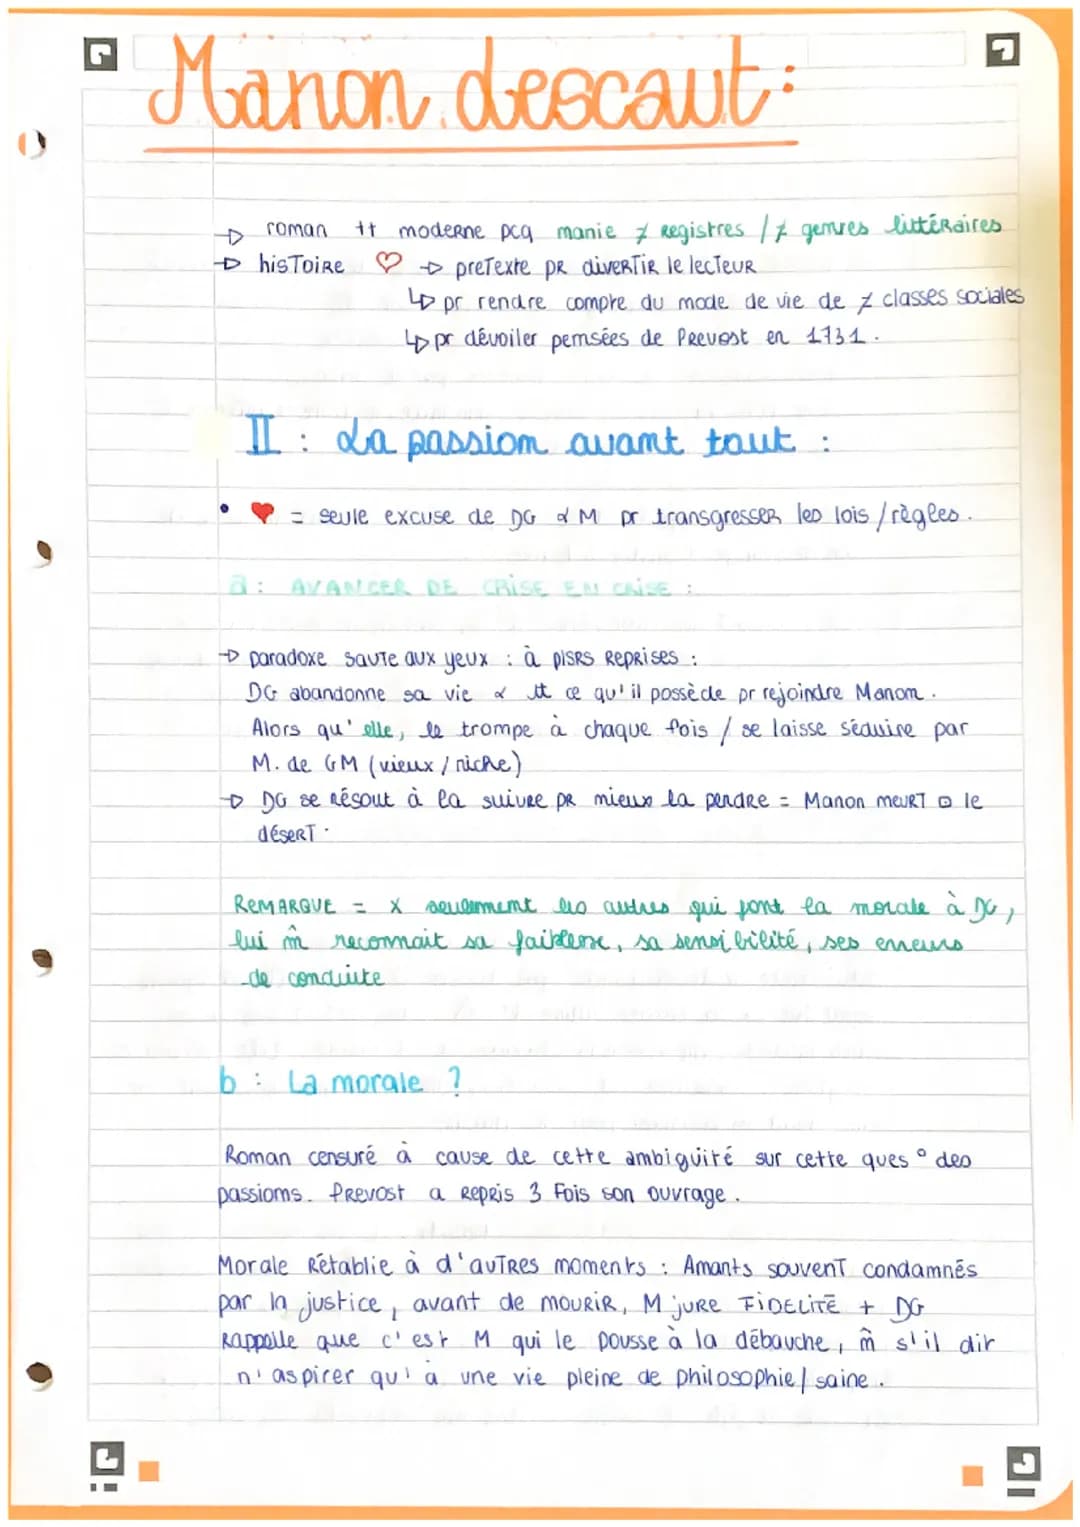 Manon descaut :
→ roman tt moderne pcq manie ≠ registres / ≠ genres littéraires
→ hisToire ♡ → preTexte pr diverTir le lecTeur
↳ pr rendre compte du mode de vie de ≠ classes sociales
↳ pr dévoiler pensées de Prevost en 1731.
II : La passion avant tout :
• ♥ = seule excuse de DG & M pr transgresser les lois / règles.
a : AVANCER DE CRISE EN CRISE :
→ paradoxe sauTe aux yeux : à plsrs reprises :
DG abandonne sa vie & tt ce qu'il possède pr rejoindre Manon.
Alors qu'elle, le trompe à chaque fois / se laisse séduire par
M. de GM (vieux / riche)
→ DG se résout à la suivre pr mieux la perdre = Manon meurT ⊡ le
déserT.
REMARQUE = X seulement les autres qui font la morale à DG,
lui m̂ reconnait sa faiblesse, sa sensibilité, ses erreurs
de conduite
b : La morale ?
Roman censuré à cause de cette ambiguité sur cette ques° des
passions. Prevost a repris 3 Fois son ouvrage.
Morale Rétablie à d'auTres moments : Amants souvenT condamnés
par la justice, avant de mourir, M jure FIDELITÉ + DG
Rappelle que c'est M qui le pousse à la débauche, m̂ s'il dit
n'aspirer qu'à une vie pleine de philosophie / saine.